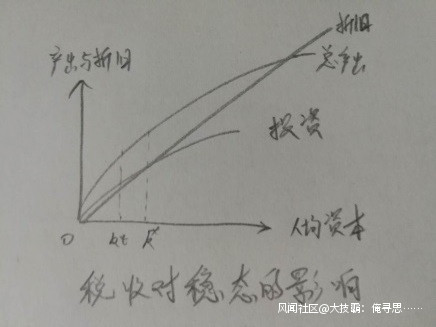 产出与折旧
折旧
总产出
投资
人均资本
O
kt
k*
税收对稳态的影响
风闻社区@大技霸：俺寻思……